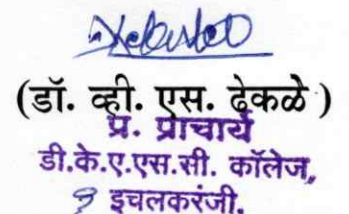 (डॉ. व्ही. एस. ढेकळे )
प्र. प्राचार्य
डी.के.ए.एस.सी. कॉलेज,
इचलकरंजी.